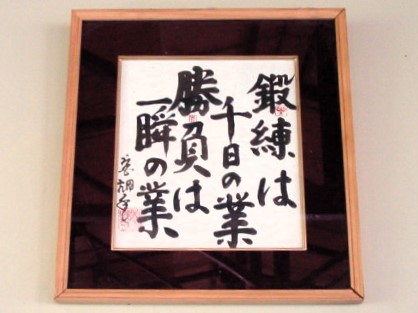 鍛練は
千日の業
勝負は
一瞬の業